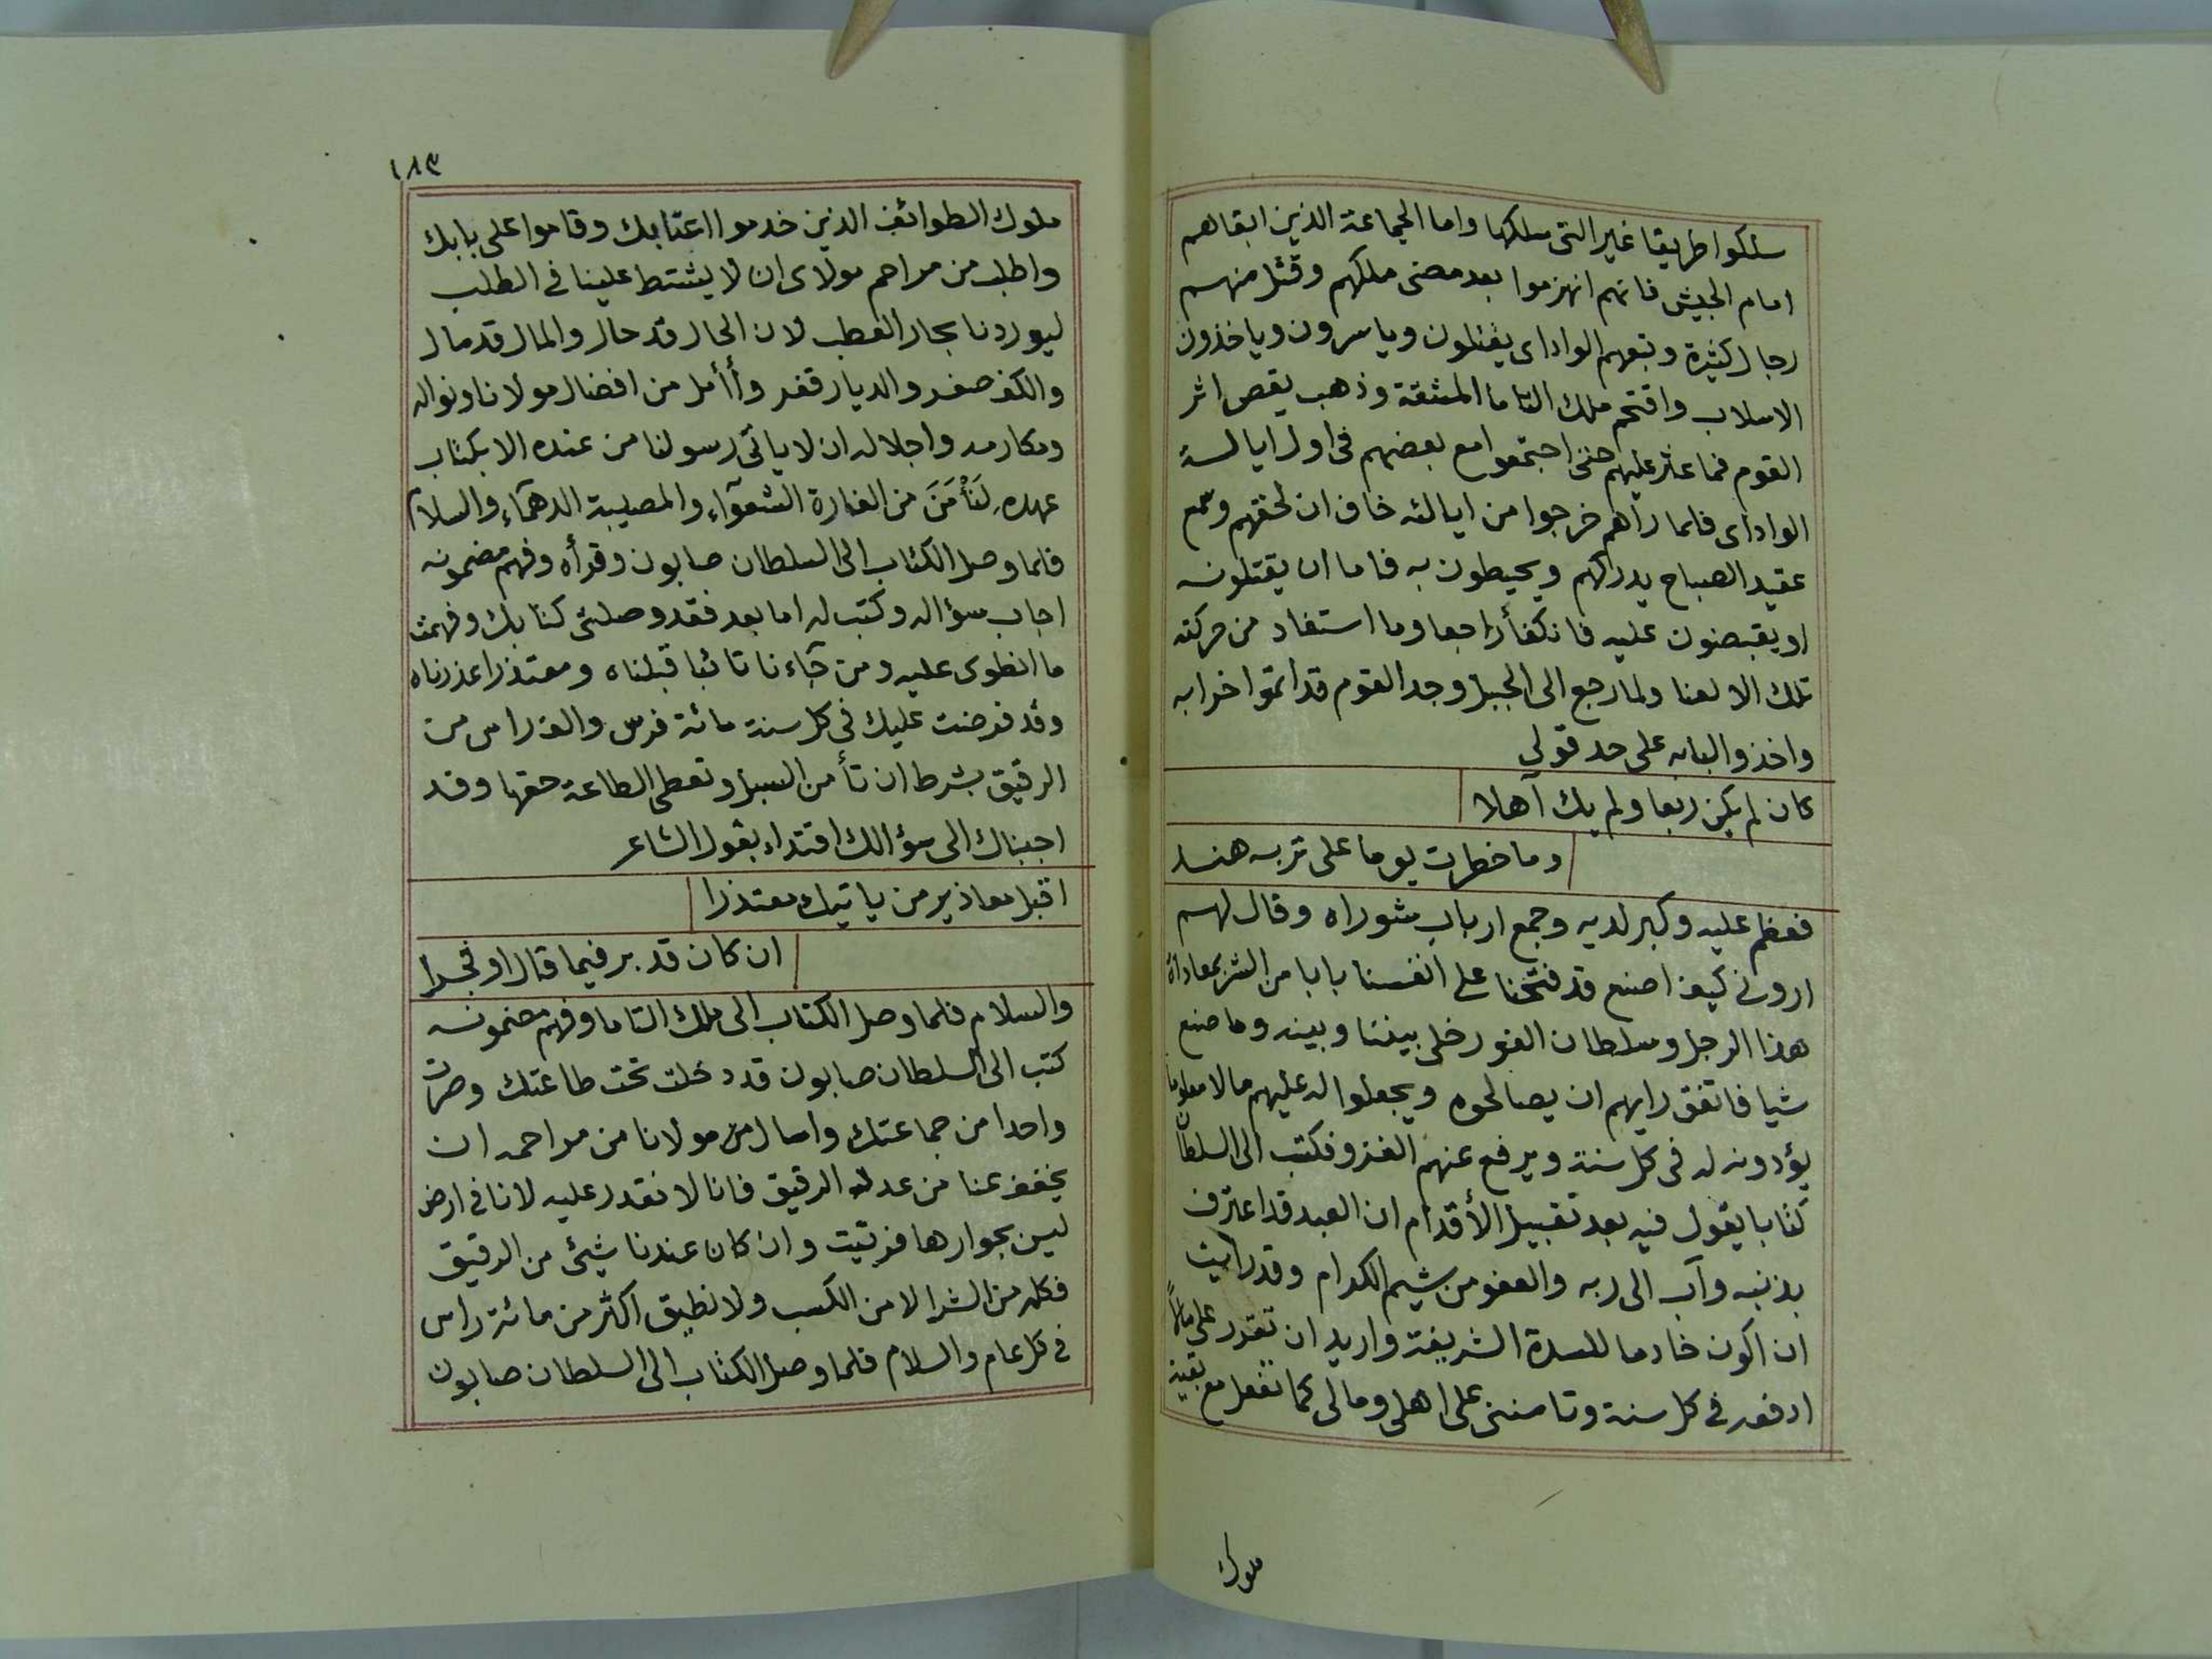 سلكوا طريقا غير التى سلكها واما الجماعة الذين ابقاهم
امام الجيش فانهم انهزموا بعد مضى ملكهم وقتل منهم
رجال كثيرة وتبعهم الواداى يقتلون وياسرون وياخذون
الاسلاب واقتحم ملك التاما المشقة وذهب يقص اثر
القوم فما عثر عليهم حتى اجتمعوا مع بعضهم فى اول ايالة
الواداى فلما رآهم خرجوا من ايالته خاف ان لحقهم وسمع
عقيد الصباح يدركهم ويحيطون به فاما ان يقتلونه
او يقبضون عليه فانكفأ راجعا وما استفاد من حركته
تلك الا لعنا ولما رجع الى الجبل وجد القوم قد اتموا خرابه
واخذوا لبابه على حد قولى
كان لم يكن ربعا ولم يك آهلا
وما خطرت يوما على تربه هند
فعظم عليه وكبر لديه وجمع ارباب شوراه وقال لهم
ارونى كيف اصنع قد فتحنا على انفسنا بابا من الشر بمعاداة
هذا الرجل وسلطان الفور خلى بيننا وبينه وما صنع
شيا فاتفق رايهم ان يصالحوه ويجعلوا له عليهم مالا معلوما
يؤدونه له فى كل سنة ويرفع عنهم الغزو فكتب الى السلطان
كتابا يقول فيه بعد تقبيل الأقدام ان العبد قد اعترف
بذنبه وآب الى ربه والعفو من شيم الكرام وقد رايت
ان اكون خادما للسدة الشريفة واريد ان تقدر على مالاً
ادفعه فى كل سنة وتامننى على اهلى ومالى كما تفعل مع بقية
ملوك
١٨٣
ملوك الطوائف الذين خدموا اعتابك وقاموا على بابك
واطلب من مراحم مولاى ان لا يشتط علينا فى الطلب
ليوردنا بحار العطب لان الحال قد حال والمال قد مال
والكف صفر والديار قفر وأأمل من افضال مولانا ونواله
ومكارمه واجلاله ان لا ياتى رسولنا من عنده الا بكتاب
عهده لَنَأْمَنَ من الغارة الشعوآء والمصيبة الدهمآء والسلام
فلما وصل الكتاب الى السلطان صابون وقرأه وفهم مضمونه
اجاب سؤاله وكتب له اما بعد فقد وصلنى كتابك وفهمت
ما انطوى عليه ومن جآءنا تائبا قبلناه ومعتذرا عذرناه
وقد فرضت عليك فى كل سنة مائة فرس والف راس من
الرقيق بشرط ان تأمن السبل وتعطى الطاعة حقها وقد
اجبناك الى سؤالك اقتداء بقول الشاعر
اقبل معاذير من ياتيك معتذرا
ان كان قد بر فيما قال او فجرا
والسلام فلما وصل الكتاب الى ملك التاما وفهم مضمونه
كتب الى السلطان صابون قد دخلت تحت طاعتك وصرت
واحدا من جماعتك واسال من مولانا من مراحمه ان
يخفف عنا من عدله الرقيق فانا لا نقدر عليه لانا فى ارض
ليس بجوارها فرتيت وان كان عندنا شيئ من الرقيق
فكله من الشرا لا من الكسب ولا نطيق اكثر من مائة راس
فى كل عام والسلام فلما وصل الكتاب الى السلطان صابون